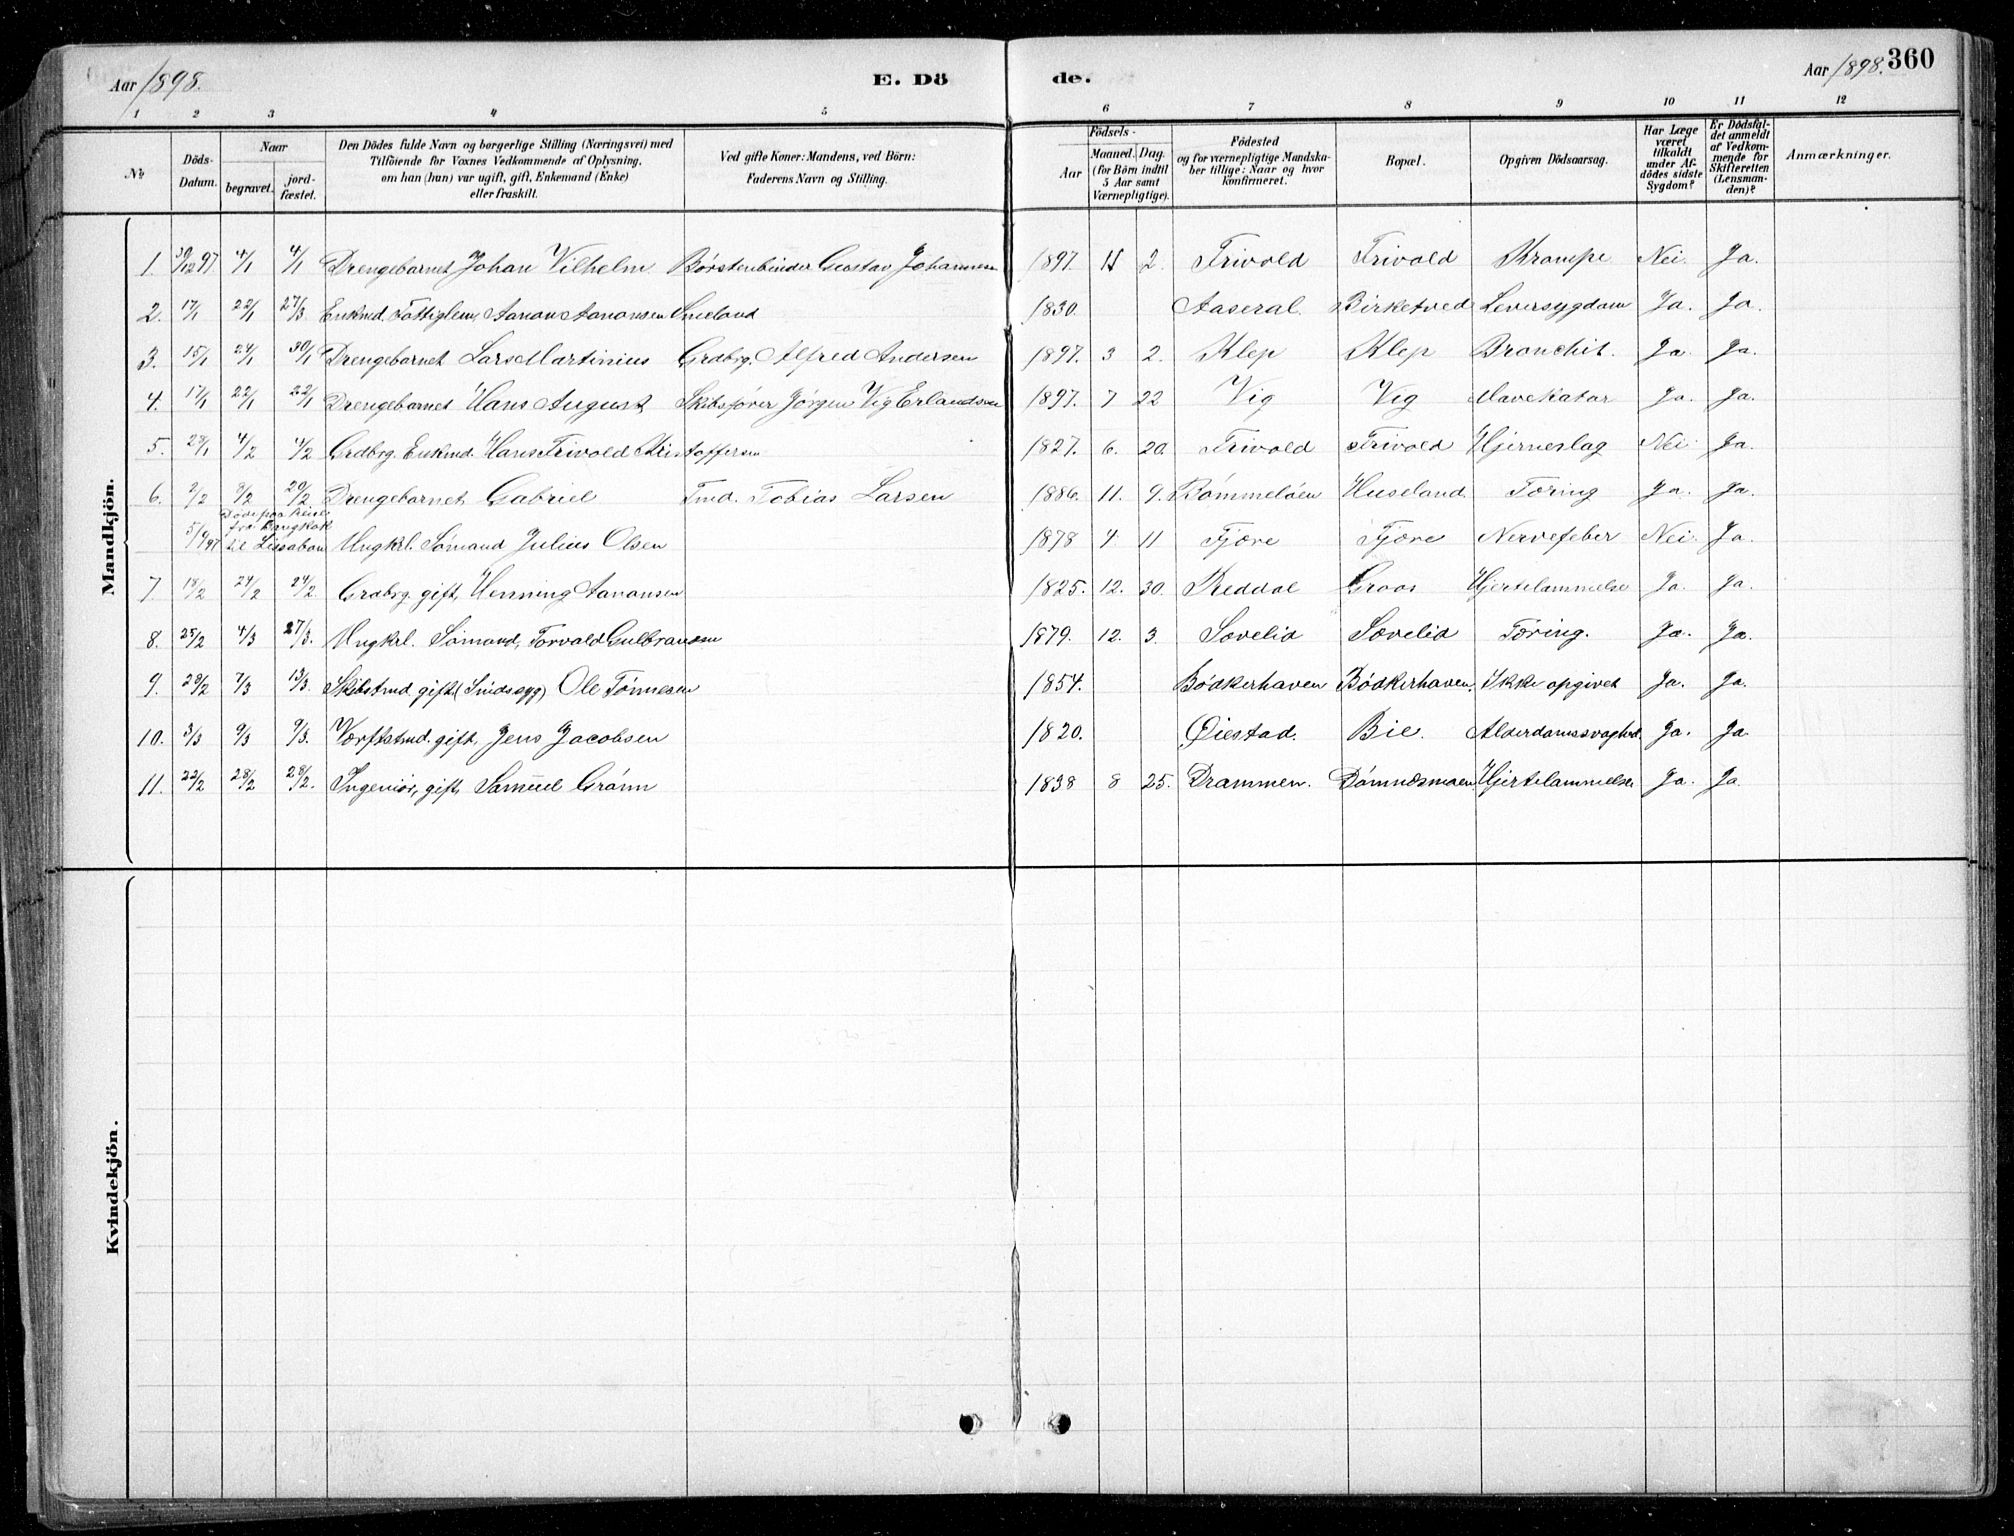 Aar 1898. E. Dö de. Aar 1898. 360
1 2 3 4 5 6 7 8 9 10 11 12
№ Döds-Datum. Naar begravet. jord-fæstet. Den Dödes fulde Navn og borgerlige Stilling (Næringsvei) med Tilföiende for Voxnes Vedkommende af Oplysning, om han (hun) var ugift, gift, Enkemand (Enke) eller fraskilt. Ved gifte Koner: Mandens, ved Börn: Faderens Navn og Stilling. Födsels- Aar Maaned. Dag. (for Börn indtil 5 Aar samt Værnepligtige). Födested og for værnepligtige Mandska-ber tillige: Naar og hvor konfirmeret. Bopæl. Opgiven Dödsaarsag. Har Læge været tilkaldt under Af-dödes sidste Sygdom? Er Dödsfal-det anmeldt af Vedkom-mende for Skifteretten (Lensman-den)? Anmærkninger.
Mandkjön.
1. 30/12 97 4/1 4/1 Drengebarnet Johan Vilhelm Börstenbinder Gustav Johannesen 1897. 11 2. Trivold Trivold Krampe Nei. Ja.
2. 17/1 22/1 27/3 Enkmd. Fattiglem, Aanon Aanonsen Snieland 1830. Aaseral. Birketved Leversygdom Ja. Ja.
3. 15/1 24/1 30/1 Drengebarnet Lars Martinius Grdbrg. Alfred Andersen 1897. 3 2. Klep Klep Bronchit. Ja. Ja.
4. 17/1 22/1 22/1 Drengebarnet Hans August, Skibsförer Jörgen Vig Erlandsen 1897. 7 22 Vig Vig Mavekatar Ja. Ja.
5. 28/1 4/2 4/2 Grdbrg. Enkmd. Hans Trivold Kristoffersen 1827. 6. 20. Trivold Trivold Hjerneslag Nei. Ja.
6. 2/2 8/2 20/2 Drengebarnet Gabriel Tmd. Tobias Larsen 1886. 11. 9. Bömmelöen Huseland. Tæring Ja. Ja.
5/9 97 Döde paa Reise fra Bangkok til Lissabon Ungkrl. Sömand Julius Olsen 1878 4 11 Fjære Fjære Nervefeber Nei. Ja.
7. 18/2 24/2 24/2 Grdbrg. gift, Henning Aanonsen 1825. 12. 30. Reddal Groos Hjertelammelse Ja. Ja.
8. 25/2 4/3 27/3. Ungkrl. Sömand, Torvald Gulbransen 1879. 12. 3. Sævelid Sævelid Tæring. Ja. Ja.
9. 28/2 7/3 13/3. Skibstmd. gift (Sindssyg) Ole Tönnesen 1854. Bödkerhaven Bödkerhaven. Ikke opgivet Ja. Ja.
10. 3/3 9/3 9/3. Værftstmd. gift, Jens Jacobsen 1820. Øiestad. Bie. Alderdomssvaghed. Ja. Ja.
11. 22/2 28/2 28/2. Ingeniör, gift, Samuel Grönn 1838 8 25. Drammen. Dömnesmoen Hjertelammelse Ja. Ja.
Kvindekjön.